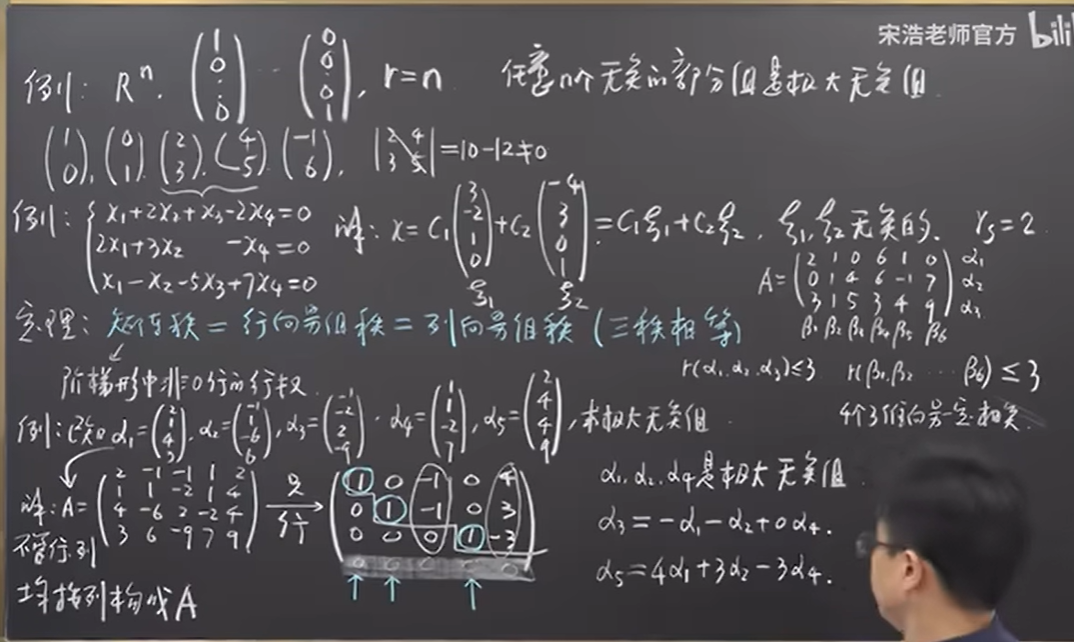 宋浩老师官方 bili
例1: Rⁿ. (1 0 ⋮ 0) … (0 0 ⋮ 0 1), r=n 任意n个无关的部分组是极大无关组.
(1 0), (0 1), (2 3), (4 5), (-1 6), |2 4 3 5|=10-12≠0
例: { x₁+2x₂+x₃-2x₄=0
2x₁+3x₂ -x₄=0
x₁-x₂-5x₃+7x₄=0
解: x=C₁(3 -2 1 0)+C₂(-4 3 0 1)=C₁ξ₁+C₂ξ₂, ξ₁,ξ₂无关的. r_s=2
ξ₁ ξ₂
A=(2 1 0 6 1 0) α₁
(0 1 4 6 -1 7) α₂
(3 1 5 3 4 9) α₃
β₁ β₂ β₃ β₄ β₅ β₆
定理: 矩阵秩=行向量组秩=列向量组秩 (三秩相等)
r(α₁,α₂,α₃)≤3 r(β₁,β₂ … β₆)≤3
阶梯形中非0行的行数
4个3维向量一定相关.
例: 已知α₁=(2 1 4 3), α₂=(-1 1 -6 6), α₃=(-1 -2 2 -9), α₄=(1 1 -2 7), α₅=(2 4 4 9), 求极大无关组
解: A=(2 -1 -1 1 2)
(1 1 -2 1 4)
(4 -6 2 -2 4)
(3 6 -9 7 9)
只行→
(1 0 -1 0 4)
(0 1 -1 0 3)
(0 0 0 1 -3)
(0 0 0 0 0)
α₁,α₂,α₄是极大无关组
α₃=-α₁-α₂+0α₄.
α₅=4α₁+3α₂-3α₄.
不管行列
均按列构成A